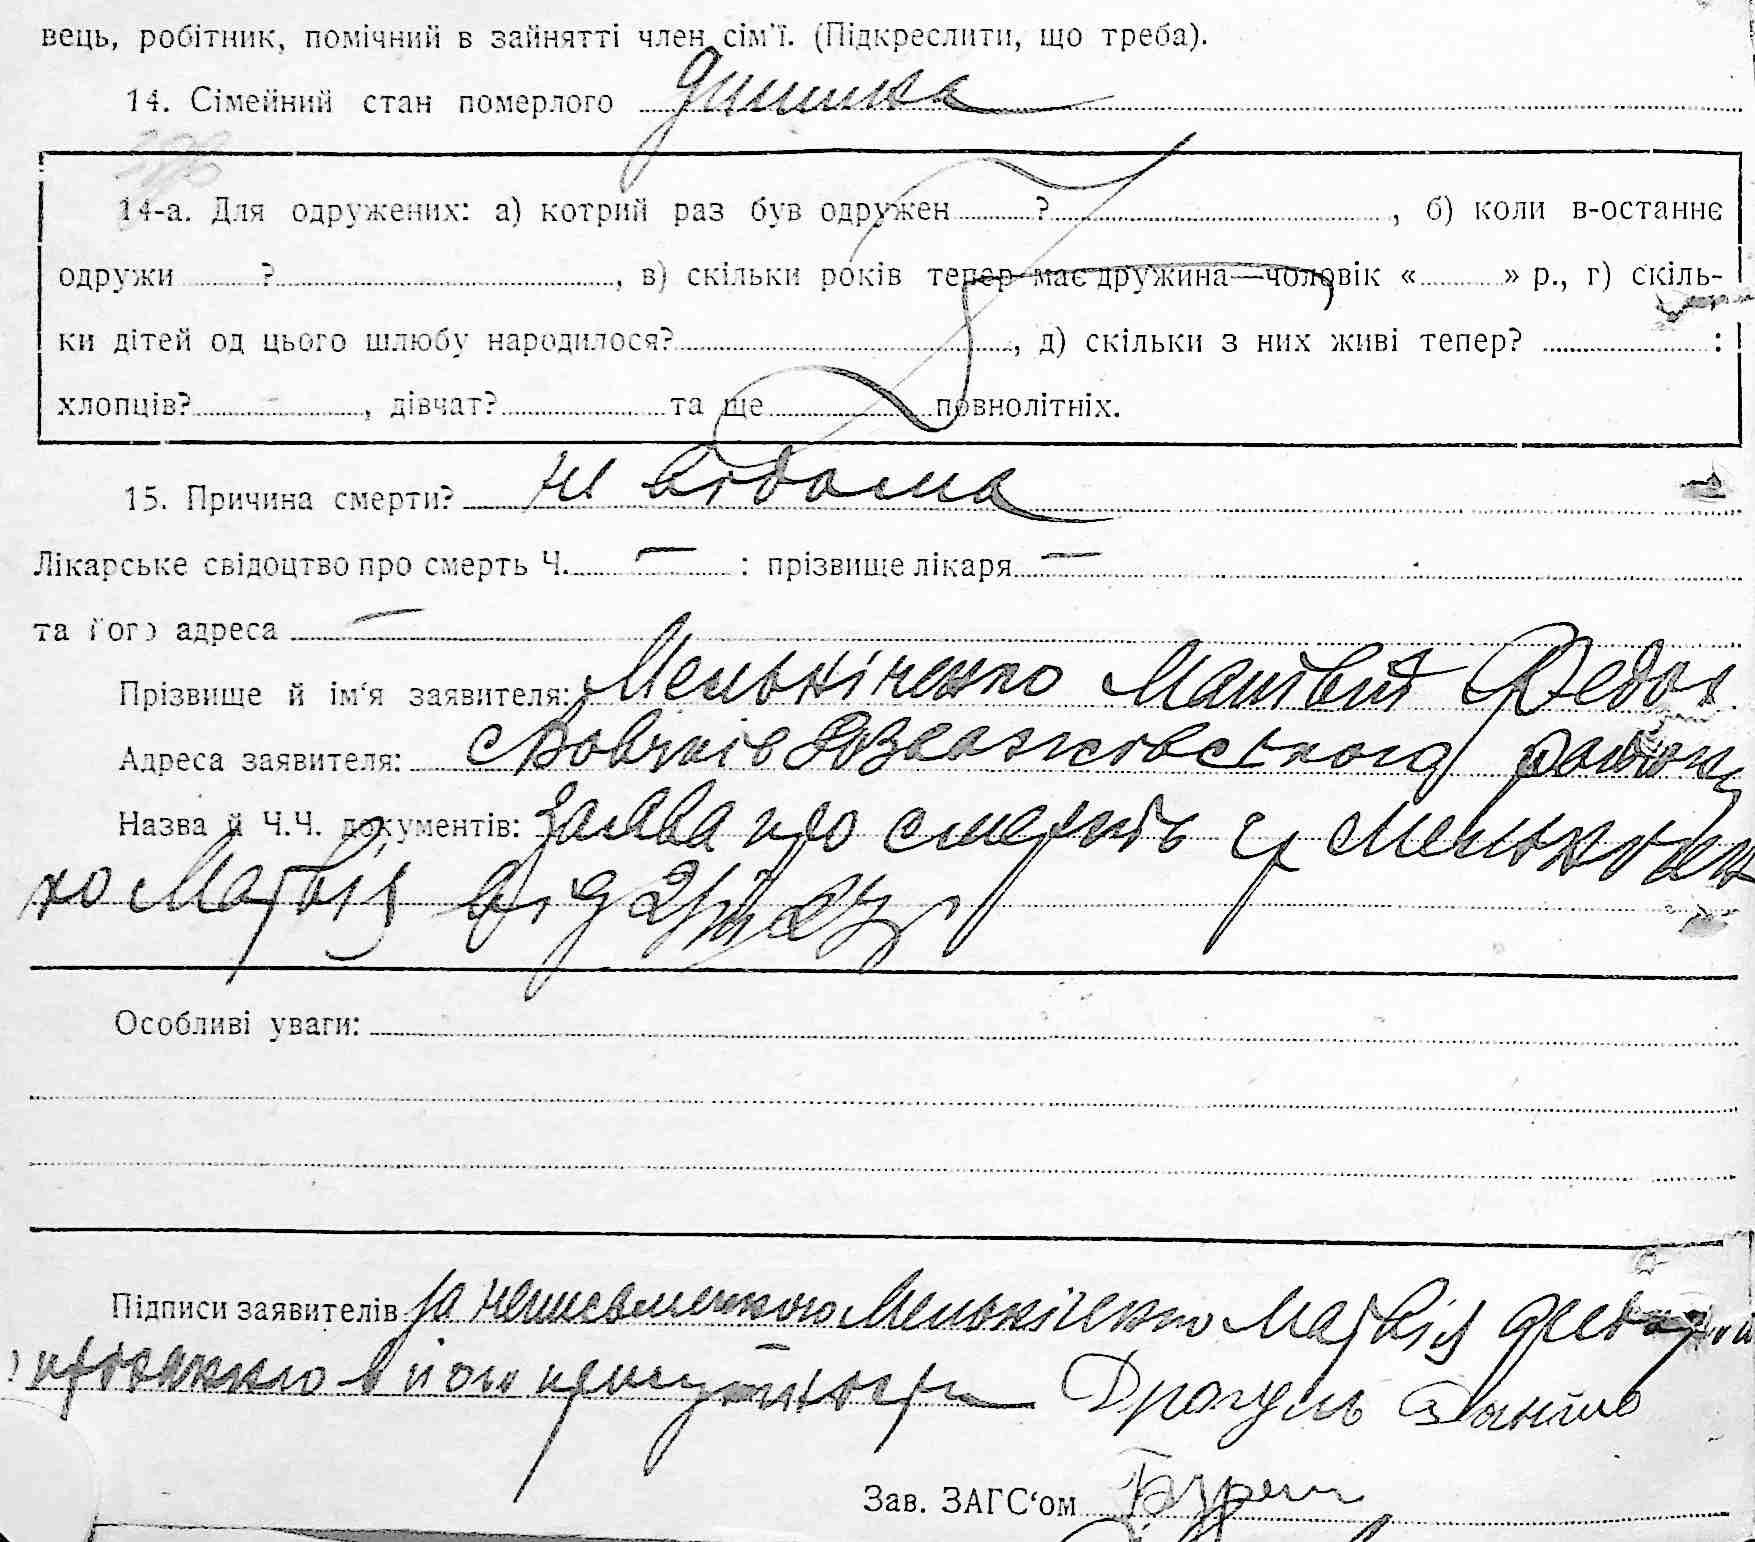 вець, робітник, помічний в зайнятті член сім'ї. (Підкреслити, що треба).
14. Сімейний стан померлого дитина
14-а. Для одружених: а) котрий раз був одружен ? , б) коли в-останнє
одружи ? , в) скільки років тепер має дружина—чоловік « » р., г) скіль-
ки дітей од цього шлюбу народилося? , д) скільки з них живі тепер? :
хлопців? , дівчат? та ще повнолітніх.
15. Причина смерти? не відома
Лікарське свідоцтво про смерть Ч. — : прізвище лікаря —
та його адреса —
Прізвище й ім'я заявителя: Мельніченко Матвій Федот
Адреса заявителя: району
Назва й Ч.Ч. документів: заява про смерть гр Мельничен
ко Матвія від
Особливі уваги:
Підписи заявителів за неписьменного Мельніченко Матвія
в його присутности Драгуль Данило
Зав. ЗАГС'ом